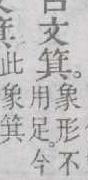 古文箕。象形不
用足。今
此象箕